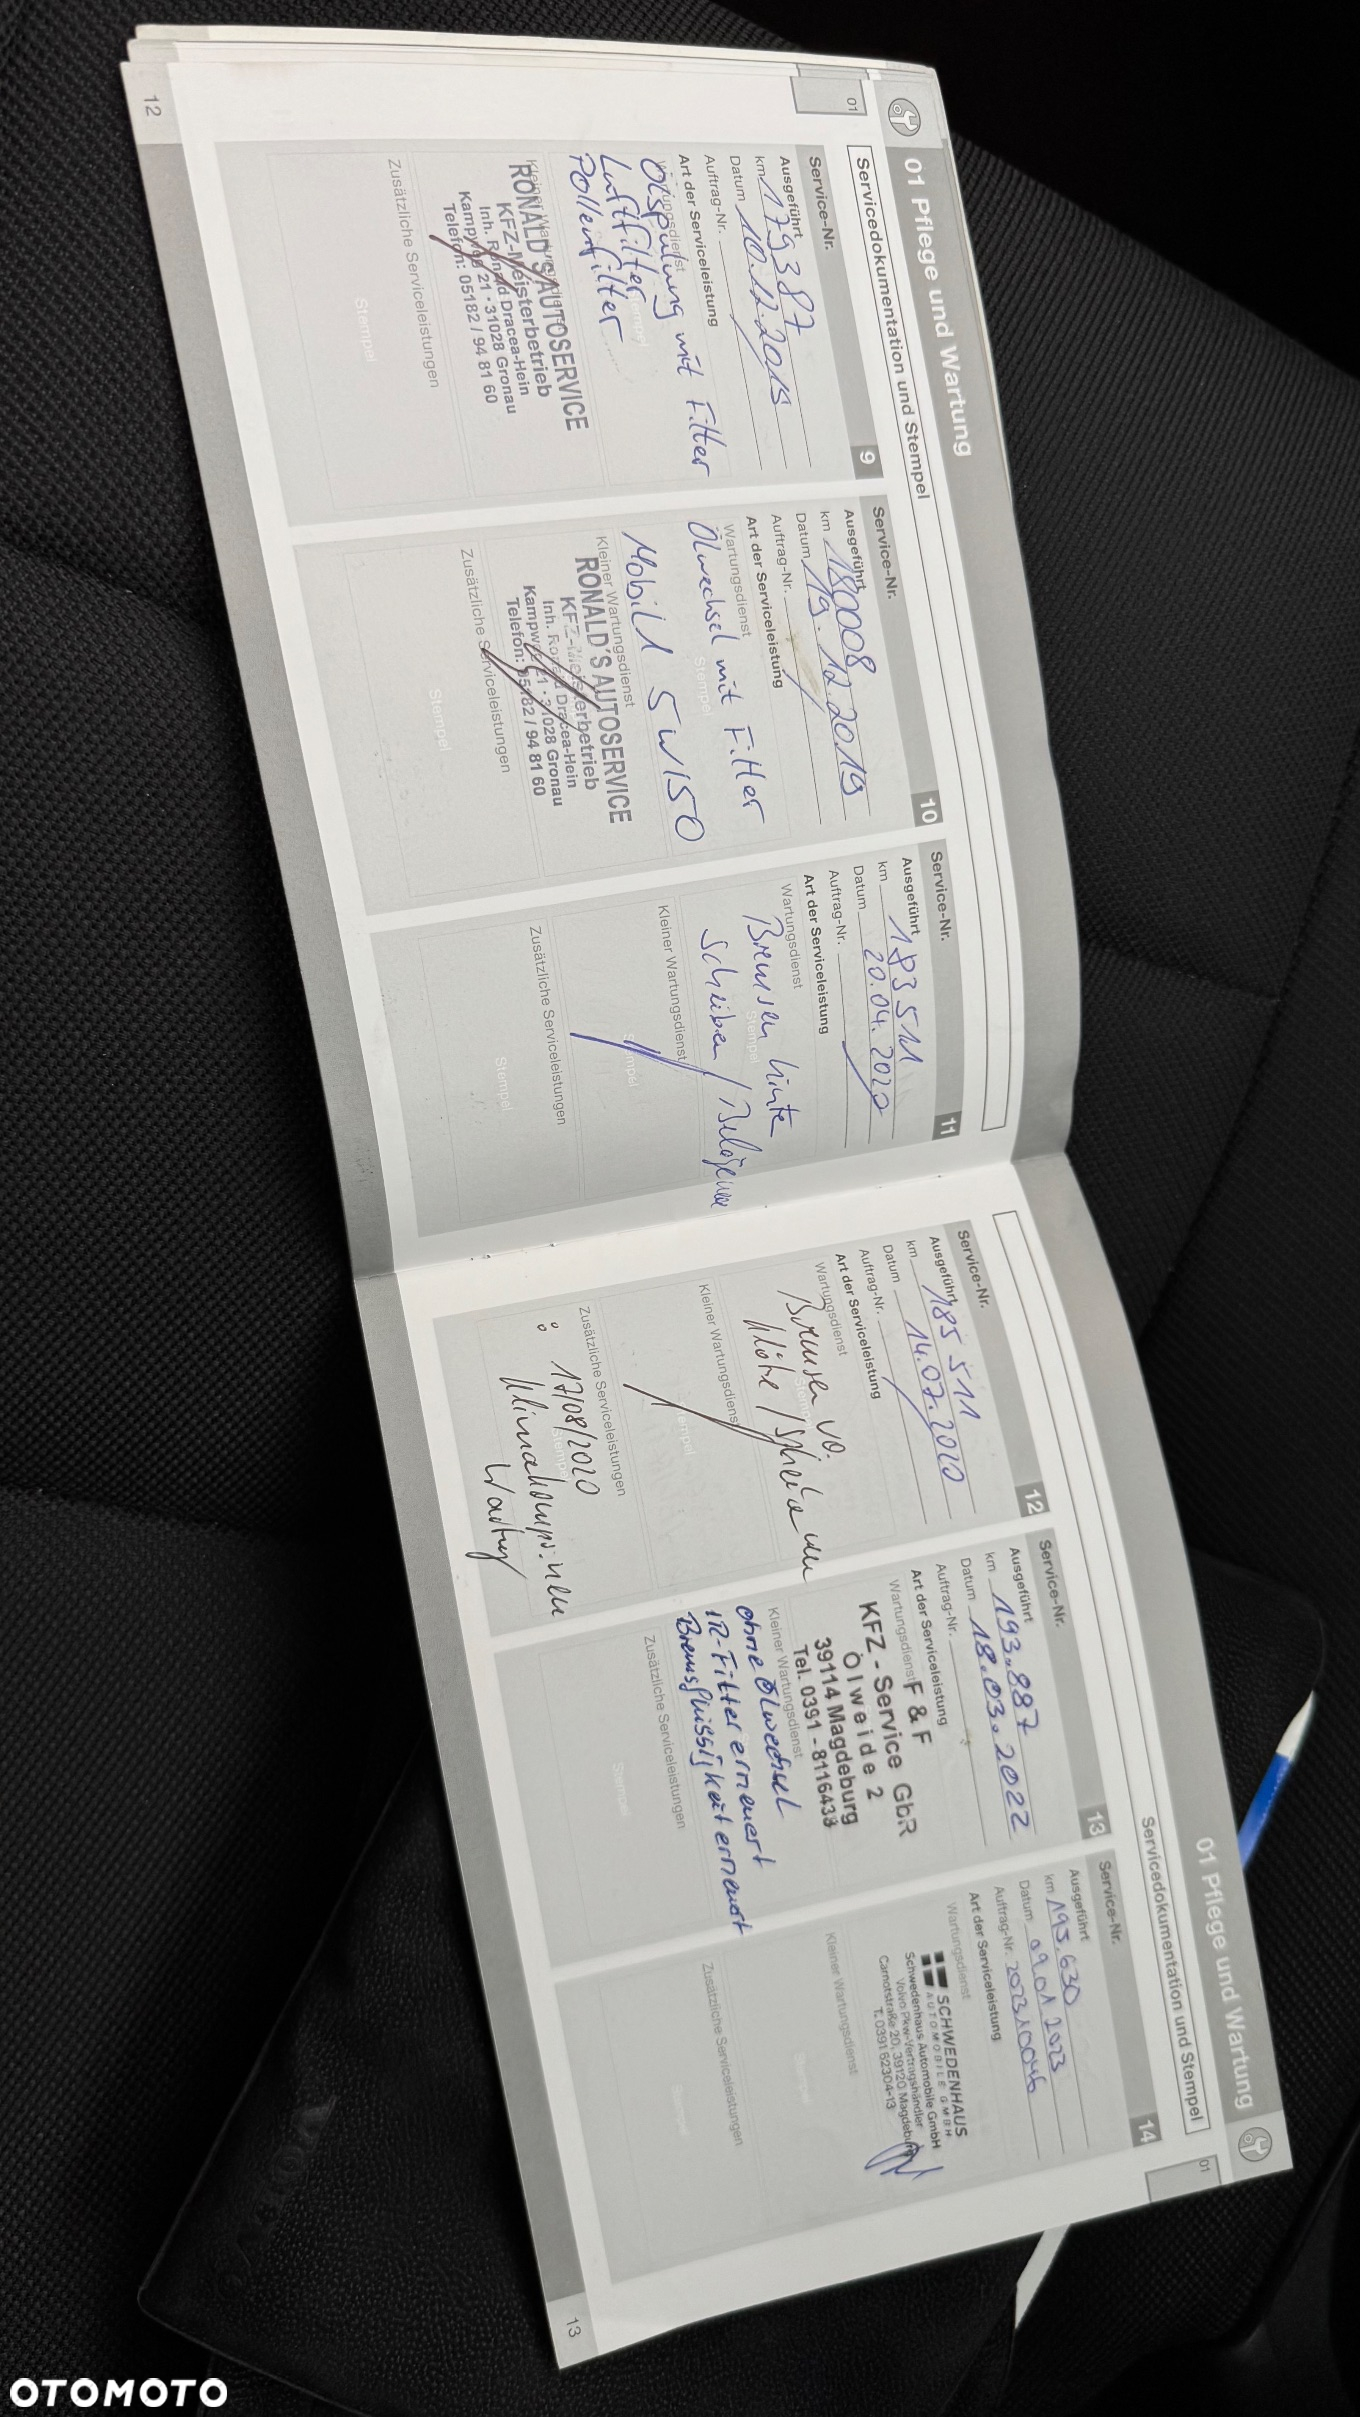 12
01
01 Pflege und Wartung
Servicedokumentation und Stempel
Service-Nr. 9
Ausgeführt
km 179387
Datum 10.12.2019
Auftrag-Nr.
Art der Serviceleistung
Wartungsdienst
Ölspülung mit Filter
Luftfilter
Stempel
Pollenfilter
Kleiner Wartungsdienst
RONALD'S AUTOSERVICE
KFZ-Meisterbetrieb
Inh. Ronald Dracea-Hein
Kampweg 21 · 31028 Gronau
Telefon: 05182 / 94 81 60
Zusätzliche Serviceleistungen
Stempel
Service-Nr. 10
Ausgeführt
km 180008
Datum 19.12.2019
Auftrag-Nr.
Art der Serviceleistung
Wartungsdienst
Ölwechsel mit Filter
Stempel
Mobil 1 5W/50
Kleiner Wartungsdienst
RONALD'S AUTOSERVICE
KFZ-Meisterbetrieb
Inh. Ronald Dracea-Hein
Kampweg 21 · 31028 Gronau
Telefon: 05182 / 94 81 60
Zusätzliche Serviceleistungen
Stempel
Service-Nr. 11
Ausgeführt
km 183511
Datum 20.04.2020
Auftrag-Nr.
Art der Serviceleistung
Wartungsdienst
Bremsen hinten
Stempel
Scheiben /
Kleiner Wartungsdienst
Stempel
Zusätzliche Serviceleistungen
Stempel
01 Pflege und Wartung
01
Servicedokumentation und Stempel
Service-Nr. 12
Ausgeführt
km 185 511
Datum 14.07.2020
Auftrag-Nr.
Art der Serviceleistung
Wartungsdienst
Bremsen vo.
Stempel
Klötze /
Kleiner Wartungsdienst
Stempel
Zusätzliche Serviceleistungen
17/08/2020
Stempel
Klimakompr. neu
Wartung
Service-Nr. 13
Ausgeführt
km 193.887
Datum 18.03.2022
Auftrag-Nr.
Art der Serviceleistung
Wartungsdienst
F & F
KFZ - Service GbR
Ölweide 2
39114 Magdeburg
Tel. 0391 - 8116438
Kleiner Wartungsdienst
ohne Ölwechsel
IR-Filter erneuert
Bremsflüssigkeit erneuert
Zusätzliche Serviceleistungen
Stempel
Service-Nr. 14
Ausgeführt
km 195.630
Datum 09.01.2023
Auftrag-Nr. 202310046
Art der Serviceleistung
Wartungsdienst
SCHWEDENHAUS
AUTOMOBILE GMBH
Schwedenhaus Automobile GmbH
Volvo Pkw-Vertragshändler
Carnotstraße 20, 39120 Magdeburg
T. 0391 62304-13
Kleiner Wartungsdienst
Stempel
Zusätzliche Serviceleistungen
Stempel
13
VOLVO
OTOMOTO